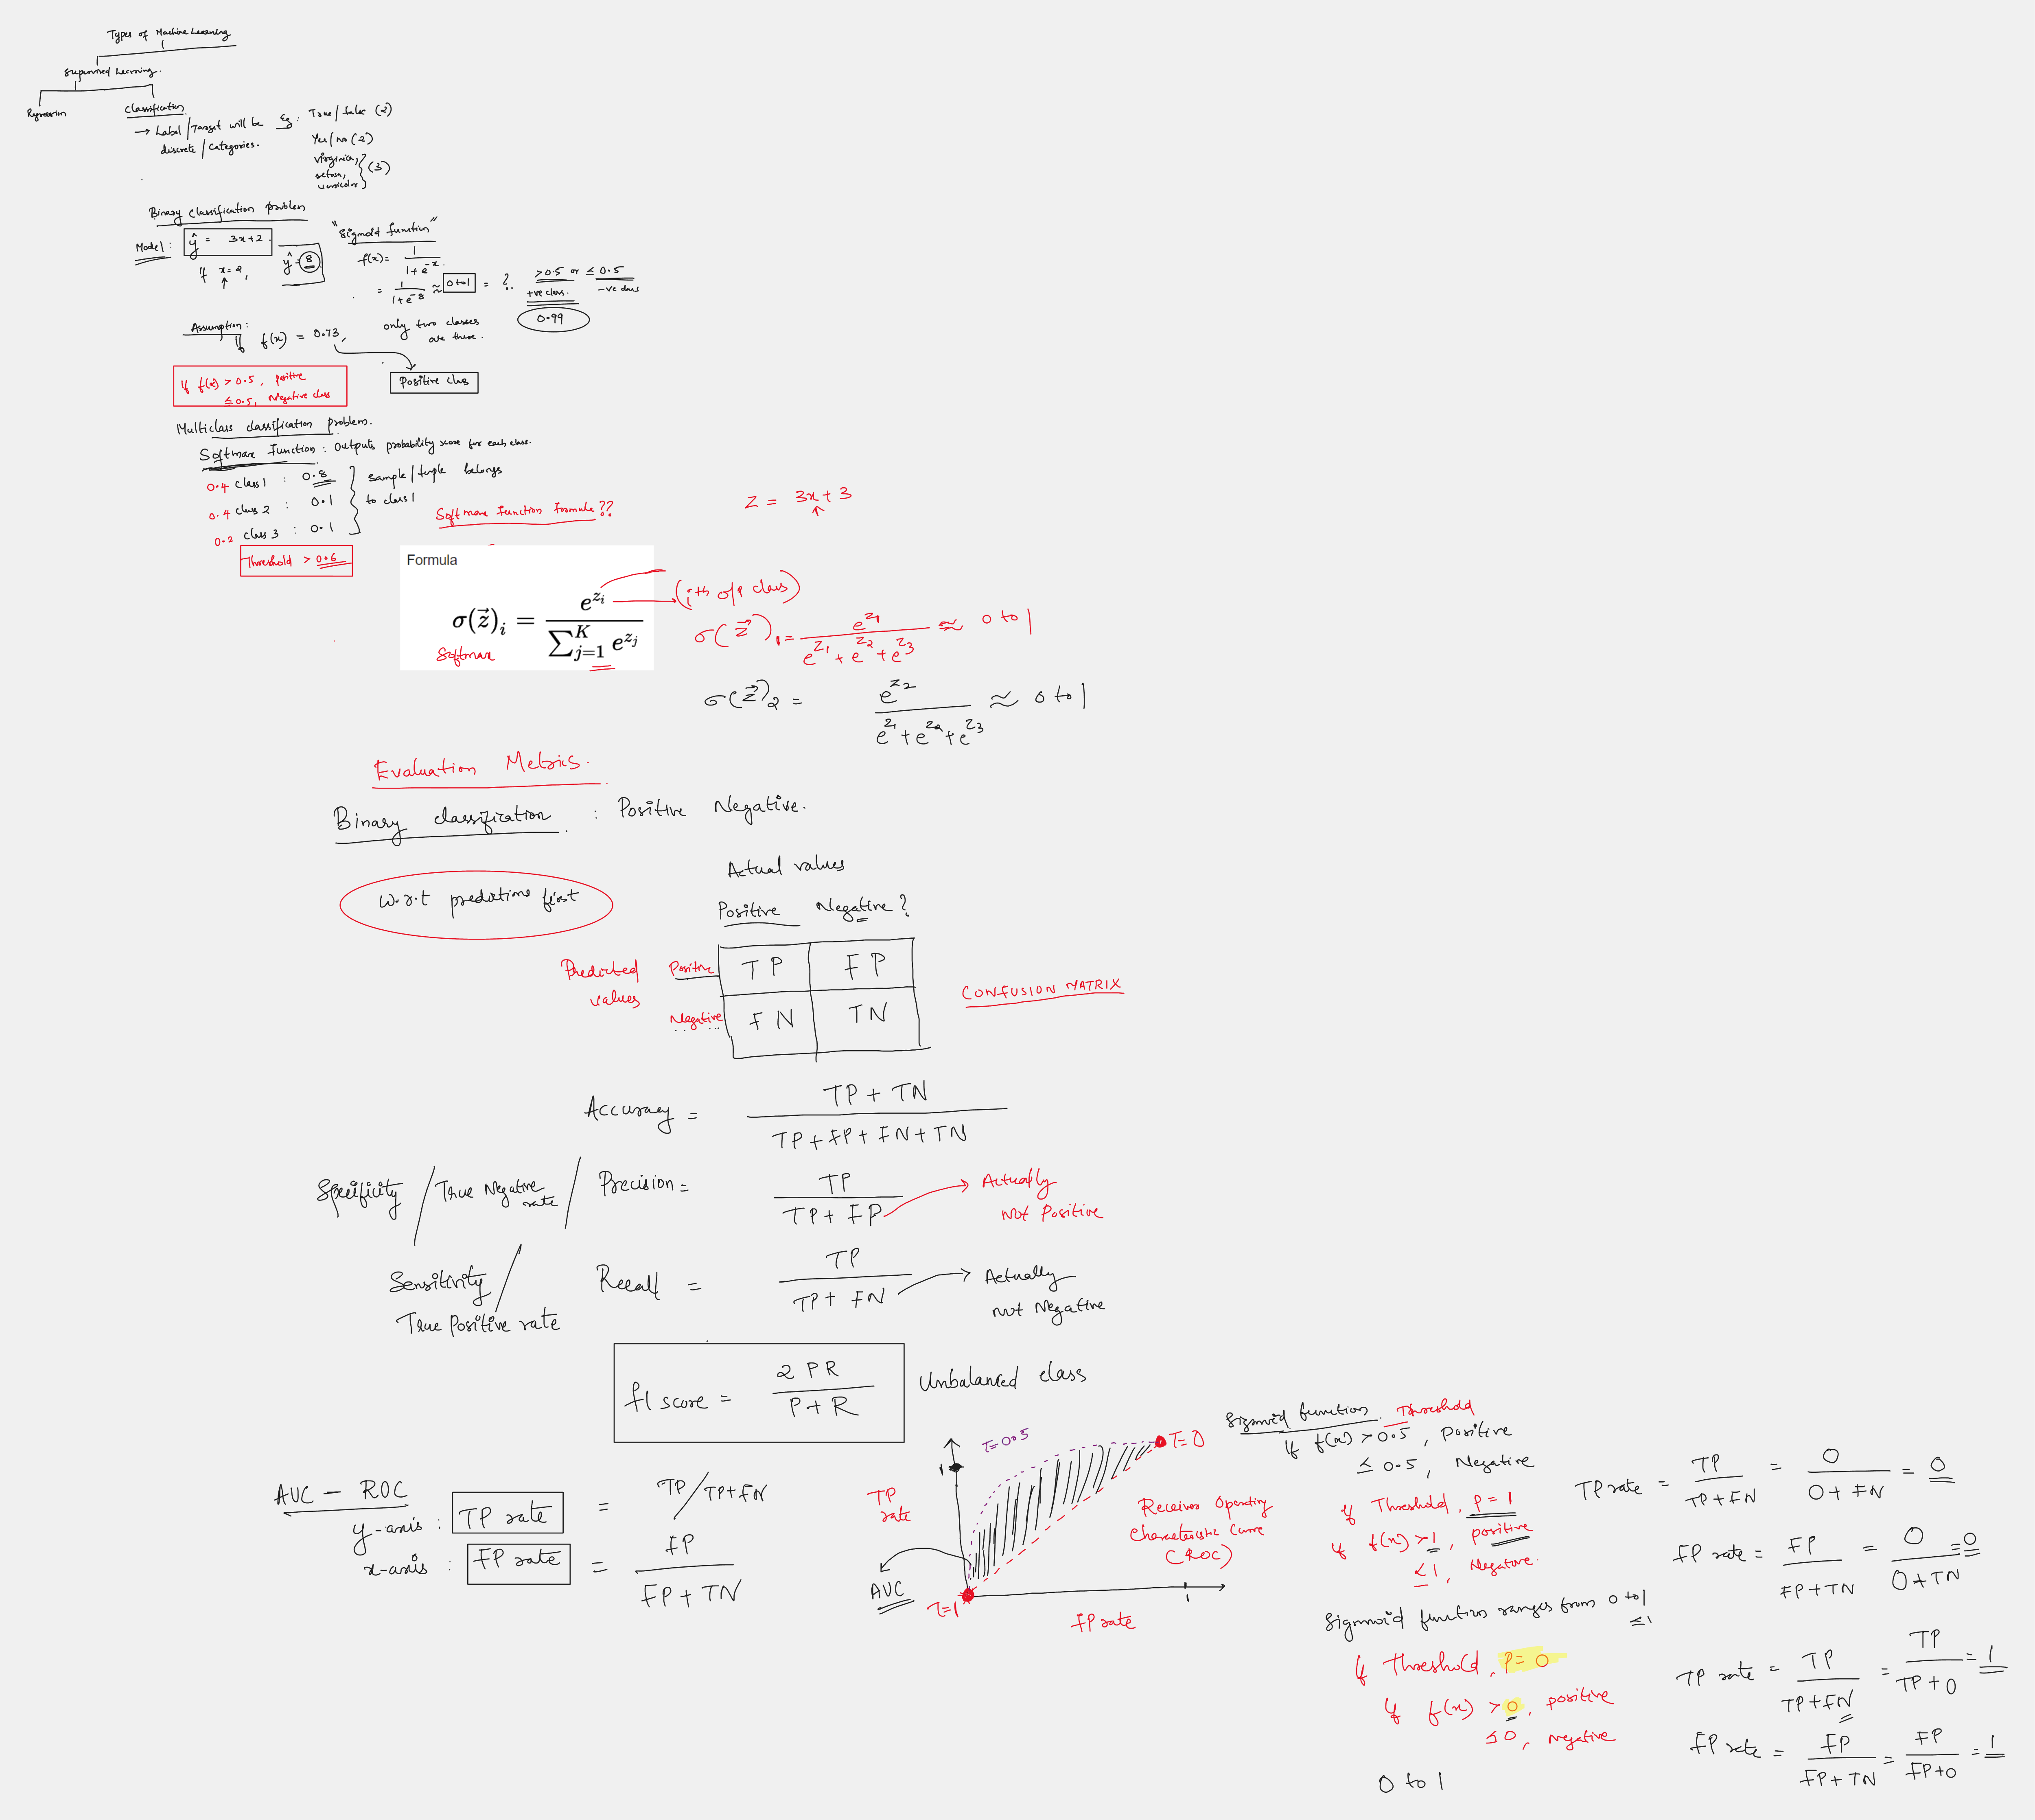 Types of Machine Learning
Supervised Learning.
Regression
Classification
→ Label / Target will be
discrete / Categories.
Eg: True / false (2)
Yes / no (2)
virginica,
setosa,
versicolor
(3)
Binary classification problem
Model: ŷ = 3x+2.
If x=2, ŷ = 8
"Sigmoid function"
f(x) = 1 / 1+e^-x.
= 1 / 1+e^-8 ≈ 0 to 1 = ?. >0.5 or ≤ 0.5
+ve class. -ve class
0.99
Assumption:
If f(x) = 0.73, only two classes
are there.
Positive class
If f(x) > 0.5, positive
≤ 0.5, Negative class
Multiclass classification problem.
Softmax Function: Outputs probability score for each class.
0.4 class 1 : 0.8
0.4 class 2 : 0.1
0.2 class 3 : 0.1
Sample / tuple belongs
to class 1
Threshold > 0.6
Softmax function formula??
Z = 3x + 3
Formula
σ(z⃗)i = e^zi / ∑_{j=1}^{K} e^zj
Softmax
(ith o/p class)
σ(z⃗)1 = e^z1 / e^z1 + e^z2 + e^z3 ≈ 0 to 1
σ(z⃗)2 = e^z2 / e^z1 + e^z2 + e^z3 ≈ 0 to 1
Evaluation Metrics.
Binary classification : Positive Negative.
w.r.t predictions first
Actual values
Positive Negative?
Predicted
values
Positive TP FP
Negative FN TN
CONFUSION MATRIX
Accuracy = TP + TN / TP + FP + FN + TN
Specificity / True Negative rate / Precision = TP / TP + FP
Actually
Not Positive
Sensitivity / True Positive rate
Recall = TP / TP + FN
Actually
not Negative
f1 score = 2 PR / P + R
Unbalanced class
AUC - ROC
y-axis: TP rate = TP / TP+FN
x-axis: FP rate = FP / FP + TN
τ=0.5
τ=0
1
TP
rate
Receiver Operating
Characteristic Curve
(ROC)
AUC
τ=1
1
FP rate
Sigmoid function. Threshold
If f(x) > 0.5, Positive
≤ 0.5, Negative
If Threshold, P = 1
If f(x) > 1, positive
≤ 1, Negative.
Sigmoid function ranges from 0 to 1
≤ 1
If Threshold, P = 0
If f(x) > 0, positive
≤ 0, negative
0 to 1
TP rate = TP / TP + FN = 0 / 0 + FN = 0
FP rate = FP / FP + TN = 0 / 0 + TN = 0
TP rate = TP / TP + FN = TP / TP + 0 = 1
FP rate = FP / FP + TN = FP / FP + 0 = 1